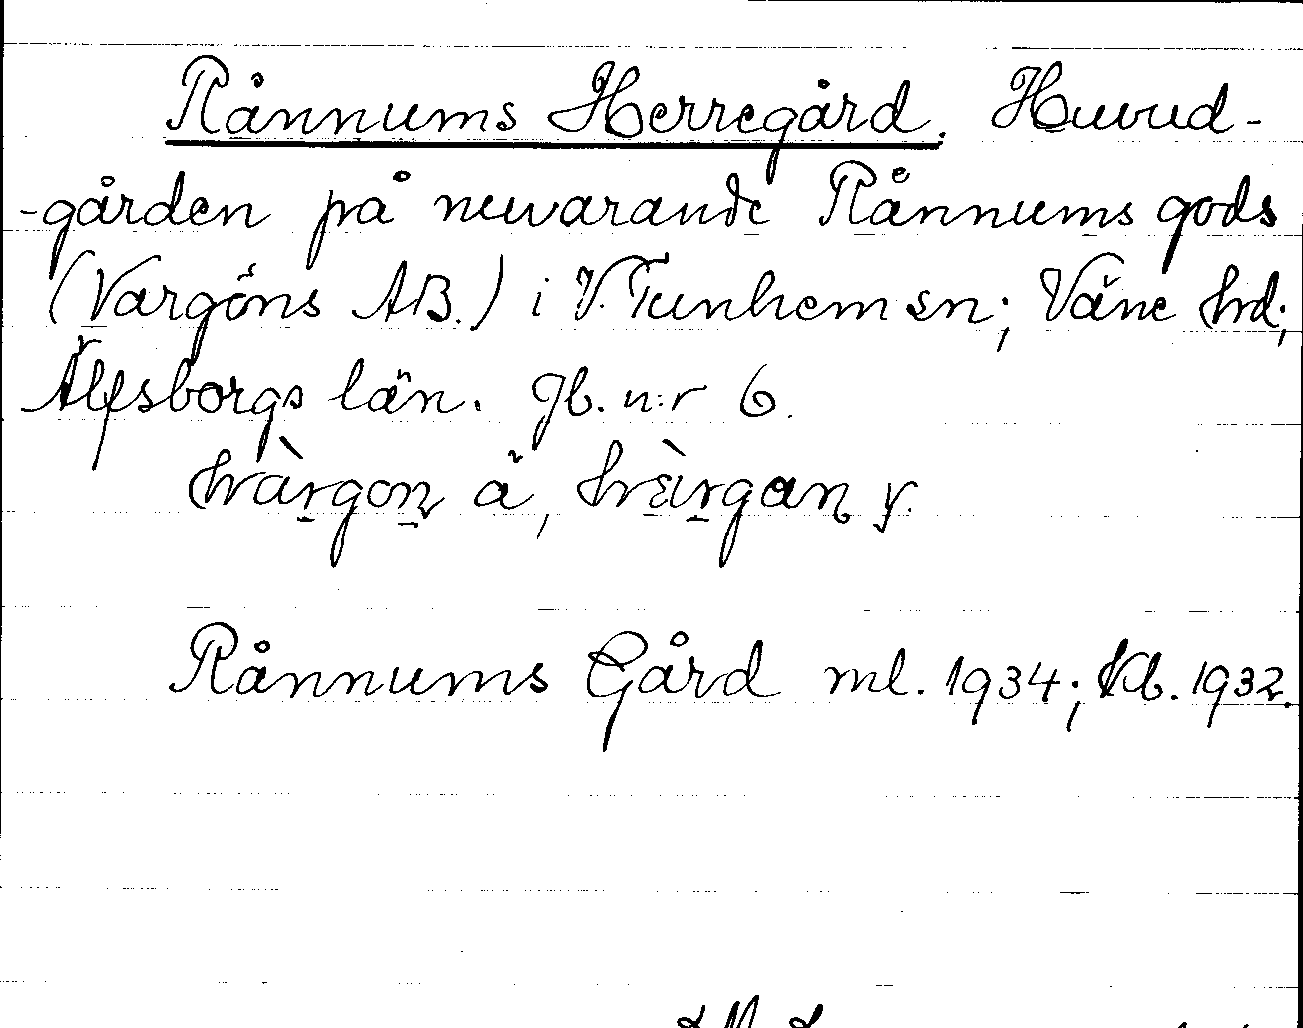 Rånnums Herregård. Huvud-
-gården på nuvarande Rånnums gods
(Vargöns AB.) i V. Tunhem sn; Väne hrd;
Älfsborgs län. Jb. n:r 6.
Rånnums Gård ml. 1934; Kb. 1932.